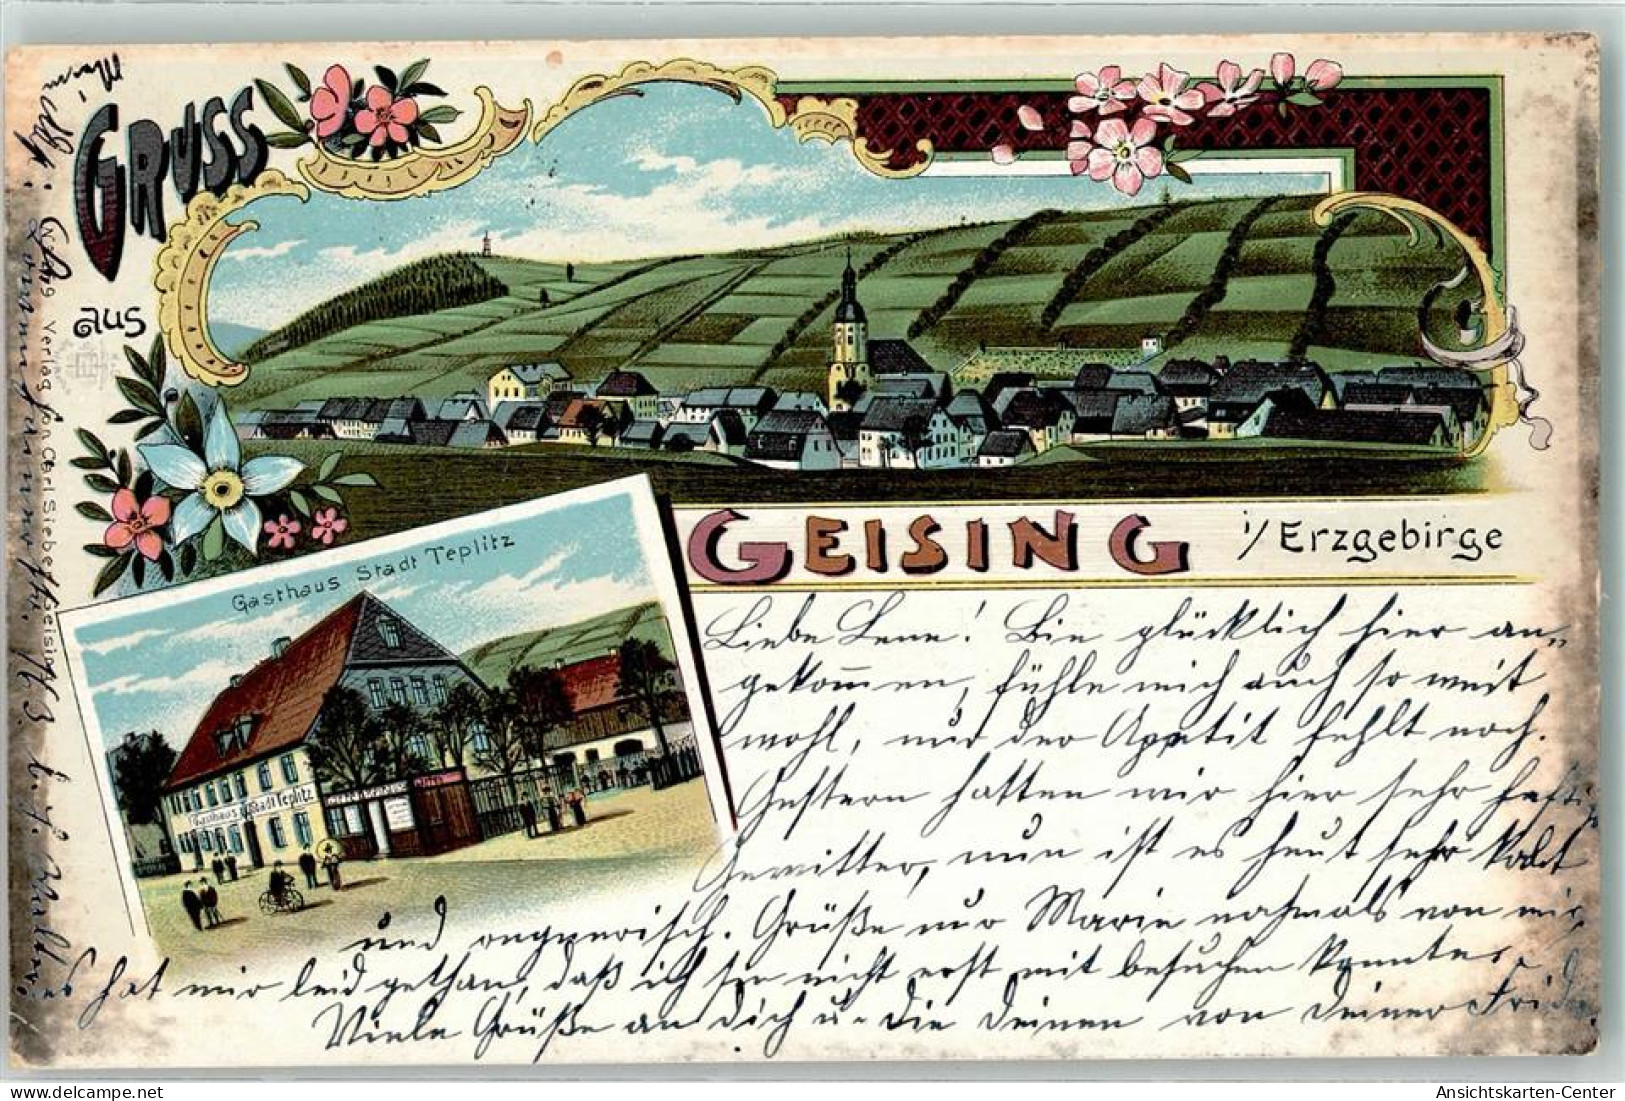 GRUSS
aus
GEISING
i/ Erzgebirge
Gasthaus Stadt Teplitz
Gasthaus Stadt Teplitz
Verlag von Carl Siebert Geising
Liebe Lene! Bin glücklich hier an-
gekommen, fühle mich auch so weit
wohl, nur der Appetit fehlt noch.
Gestern hatten wir hier sehr heftige
Gewitter, nun ist es heut sehr kalt
und regnerisch. Grüße nur Marie nochmals von mir,
es hat mir leid gethan, daß ich sie nicht erst mit besuchen konnte.
Viele Grüße an dich u. die deinen von deiner
Adr:
Sommerfrische
b. H. Müller
Ansichtskarten-Center